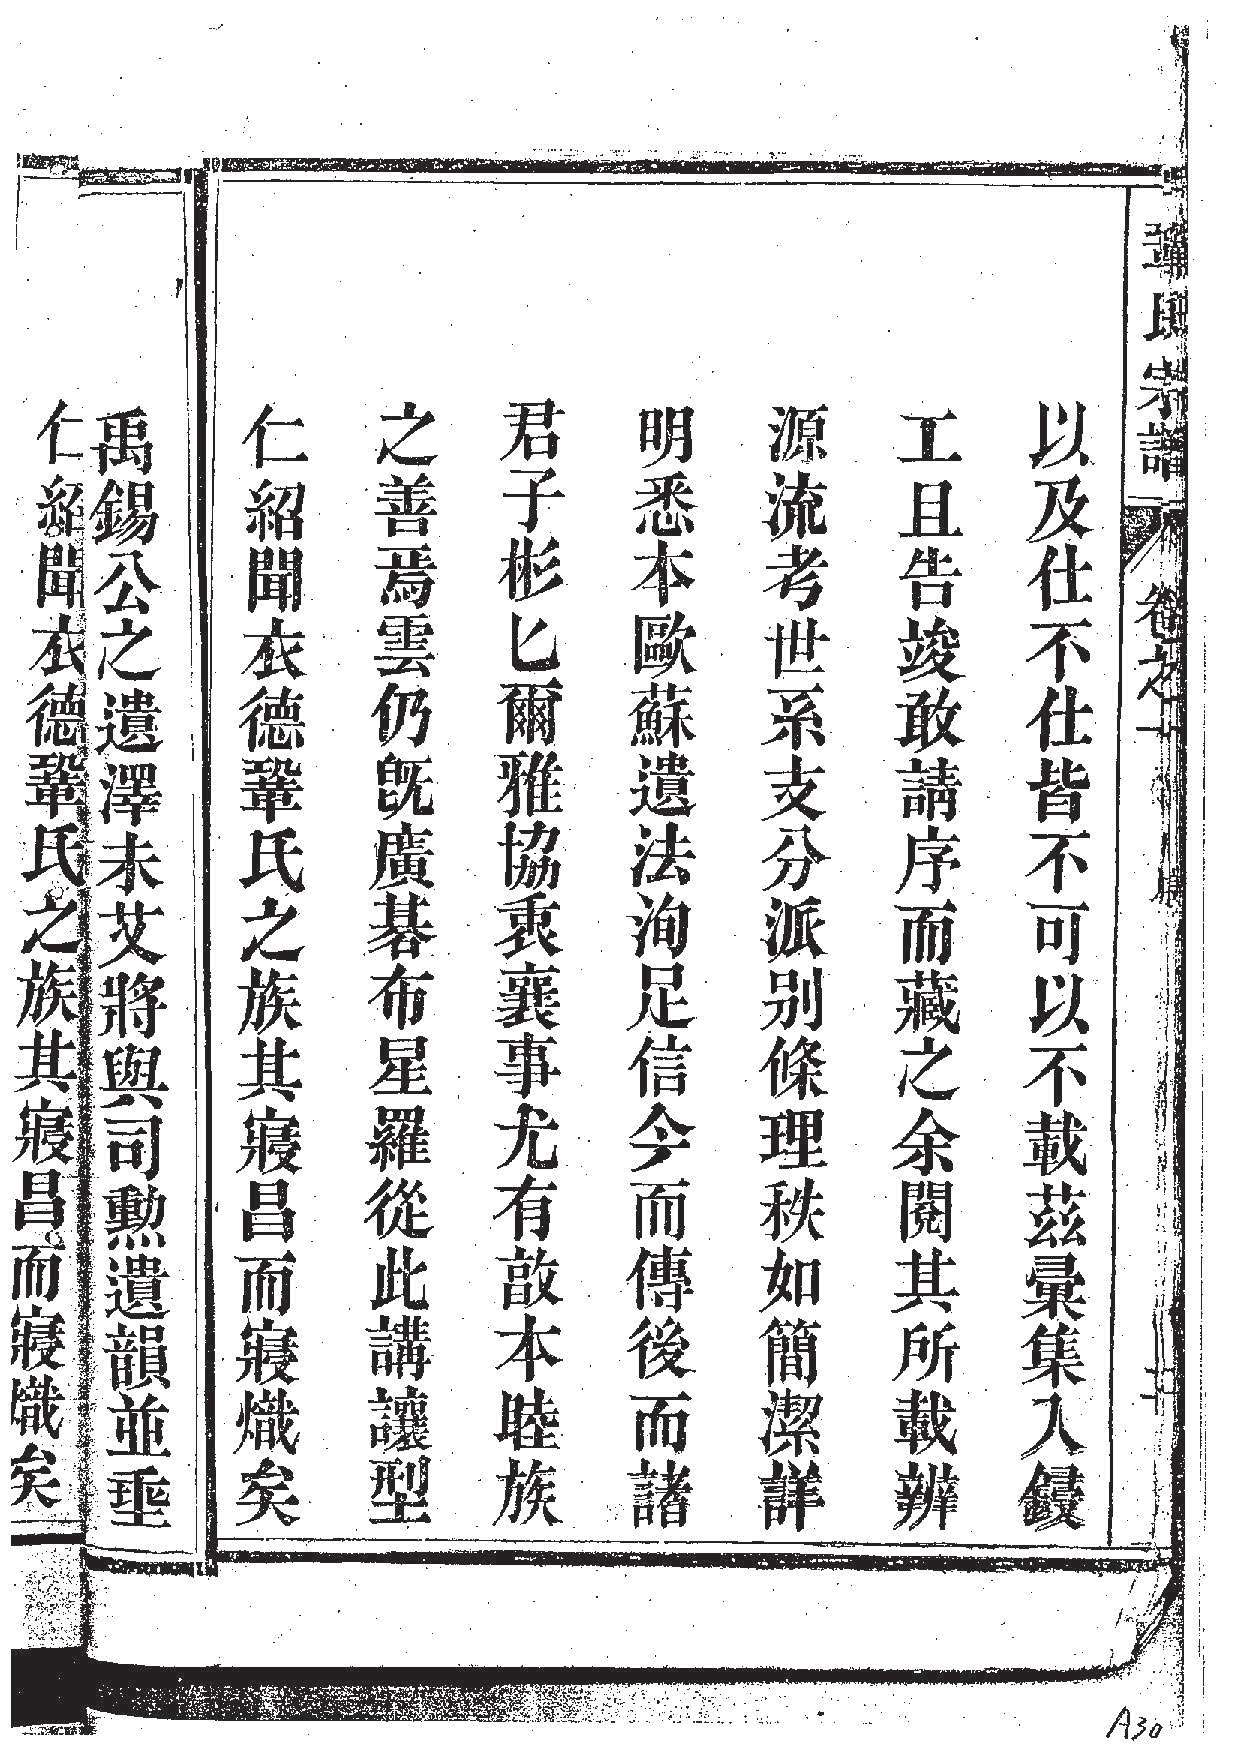 鞏氏宗譜 卷之一
以及仕不仕皆不可以不載茲彙集入鋟
工且告竣敢請序而藏之余閱其所載辨
源流考世系支分派別條理秩如簡潔詳
明悉本歐蘇遺法洵足信今而傳後而諸
君子彬匕爾雅協衷襄事尤有敦本睦族
之善焉雲仍旣廣碁布星羅從此講讓型
仁紹聞衣德鞏氏之族其寢昌而寢熾矣
禹錫公之遺澤未艾將與司勲遺韻並垂
仁紹聞衣德鞏氏之族其寢昌而寢熾矣
A30